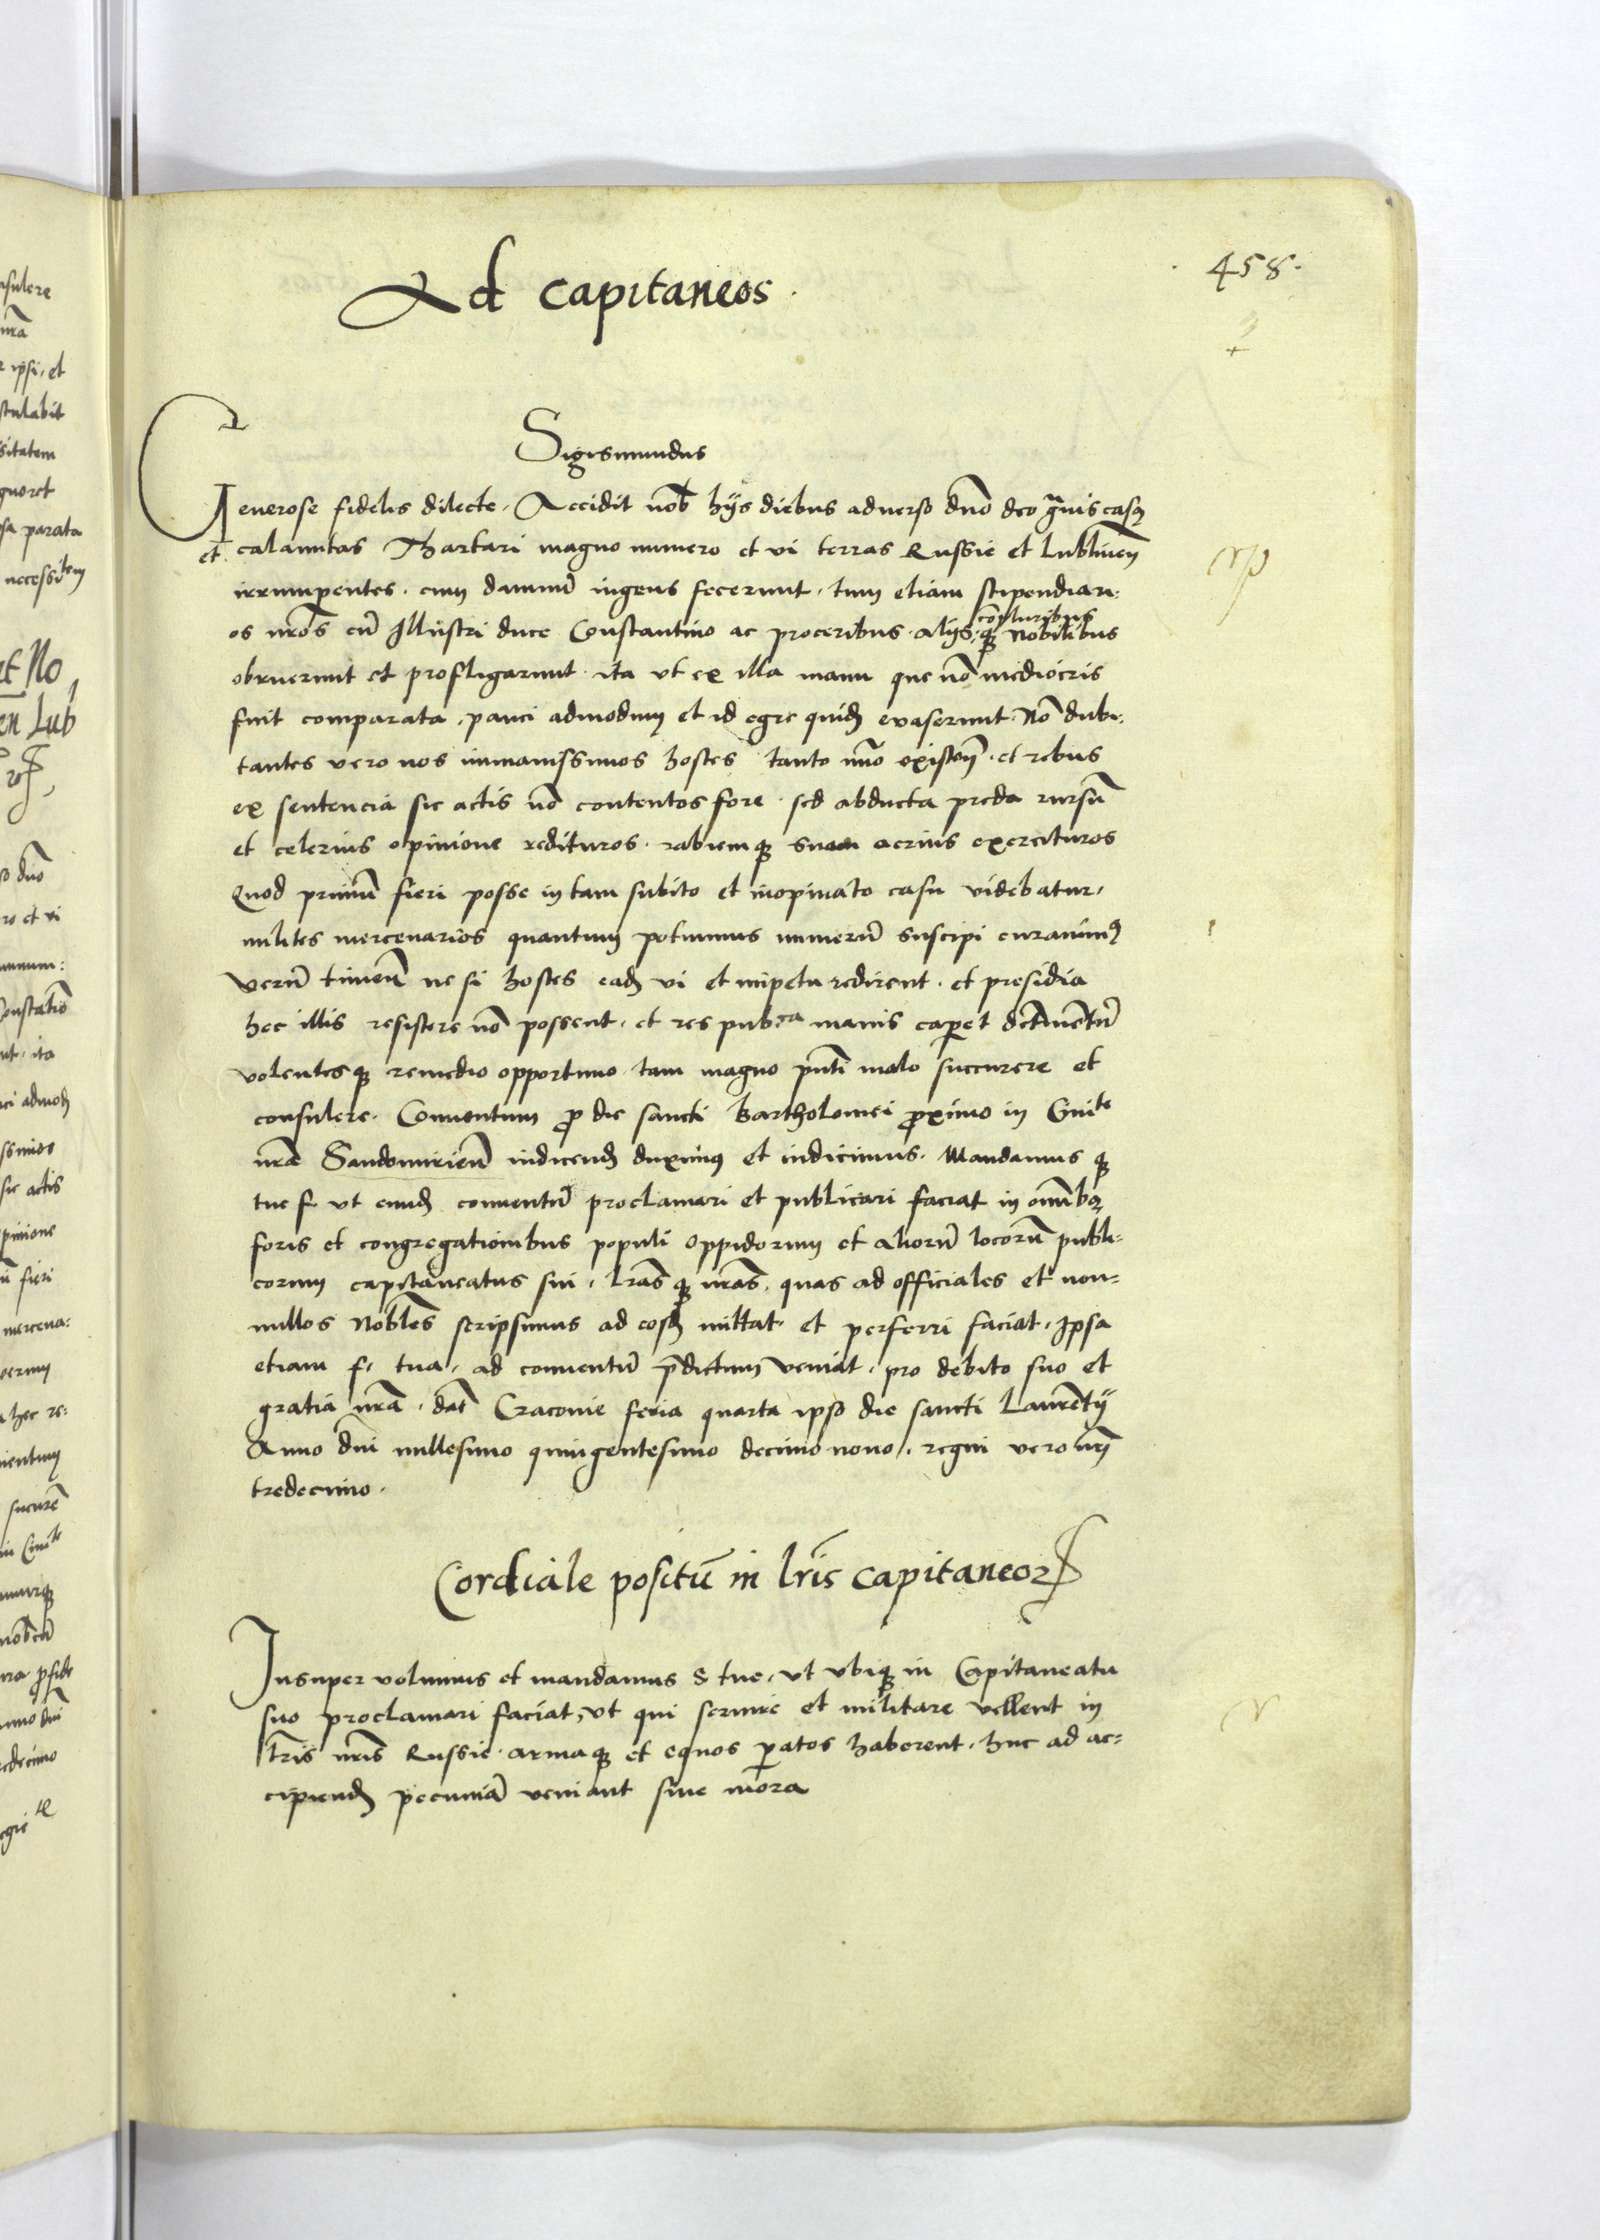 458.
Ad capitaneos.
Sigismundus
Generose fidelis dilecte. Accidit nob hijs diebus adverso dno deo gravis casus
et calamitas Thartari magno numero et vi terras Russie et Lublinen
irrumpentes. cum damnũ ingens fecerunt. tum etiam stipendiari:
os nr̃os cũ Illustri duce Constantino ac proceribus. alijs.qꝫ compluribus Nobilibus
obruerunt et profligarunt. ita ut ex illa manu que nõ mediocris
fuit comparata, pauci admodum et id egre quidꝫ evaserunt. Nõ dubi:
tantes vero nos immanissimos hostes tanto existeñ. et rebus
ex sentencia sic actis nõ contentos fore. sed abducta preda rursũ
et celerius opinione redituros. rabiemqꝫ suam acrius exercituros
Quod primũ fieri posse in tam subito et inopinato casu videbatur,
milites mercenarios quantum potuimus numerũ suscipi curavimꝰ
Verũ timeñ ne si hostes eadꝫ vi et impetu redirent. et presidia
hec illis resistere nõ possent. et res pub.ca manis caperet detrimentũ
volentesqꝫ remedio opportuno tam magno pñti malo succurere et
consulere. Conventum ꝓ die sancti Bartholomei ꝓximo in Civite
nrã Sandomirieñ indicendꝫ duximꝰ et indicimus. Mandamus qꝫ
tue f. ut eundꝫ conventũ proclamari et publicari faciat in omibꝫ
foris et congregationibus populi oppidorum et aliorũ locorũ publi-
corum capitaneatus sui. lrãs qꝫ nrãs. quas ad officiales et non-
nullos Nobles scripsimus ad eosdꝫ mittat. et perferri faciat. Ipsa
etiam f. tua. ad conventũ p̃dictum veniat. pro debito suo et
gratia nrã. dat̃ Cracovie feria quarta ipso die sancti Laurẽtij
Anno dñi millesimo quingentesimo decimo nono. regni vero nrĩ
tredecimo.
Cordiale positũ in lrĩs capitaneoꝝ
Insuper volumus et mandamus S. tue, ut ubiqꝫ in Capitaneatu
suo proclamari faciat, ut qui servire et militare vellent in
tr̃is nrĩs Russie. armaqꝫ et equos ꝑatos haberent. huc ad ac-
cipiendꝫ pecuniã veniant sine mora